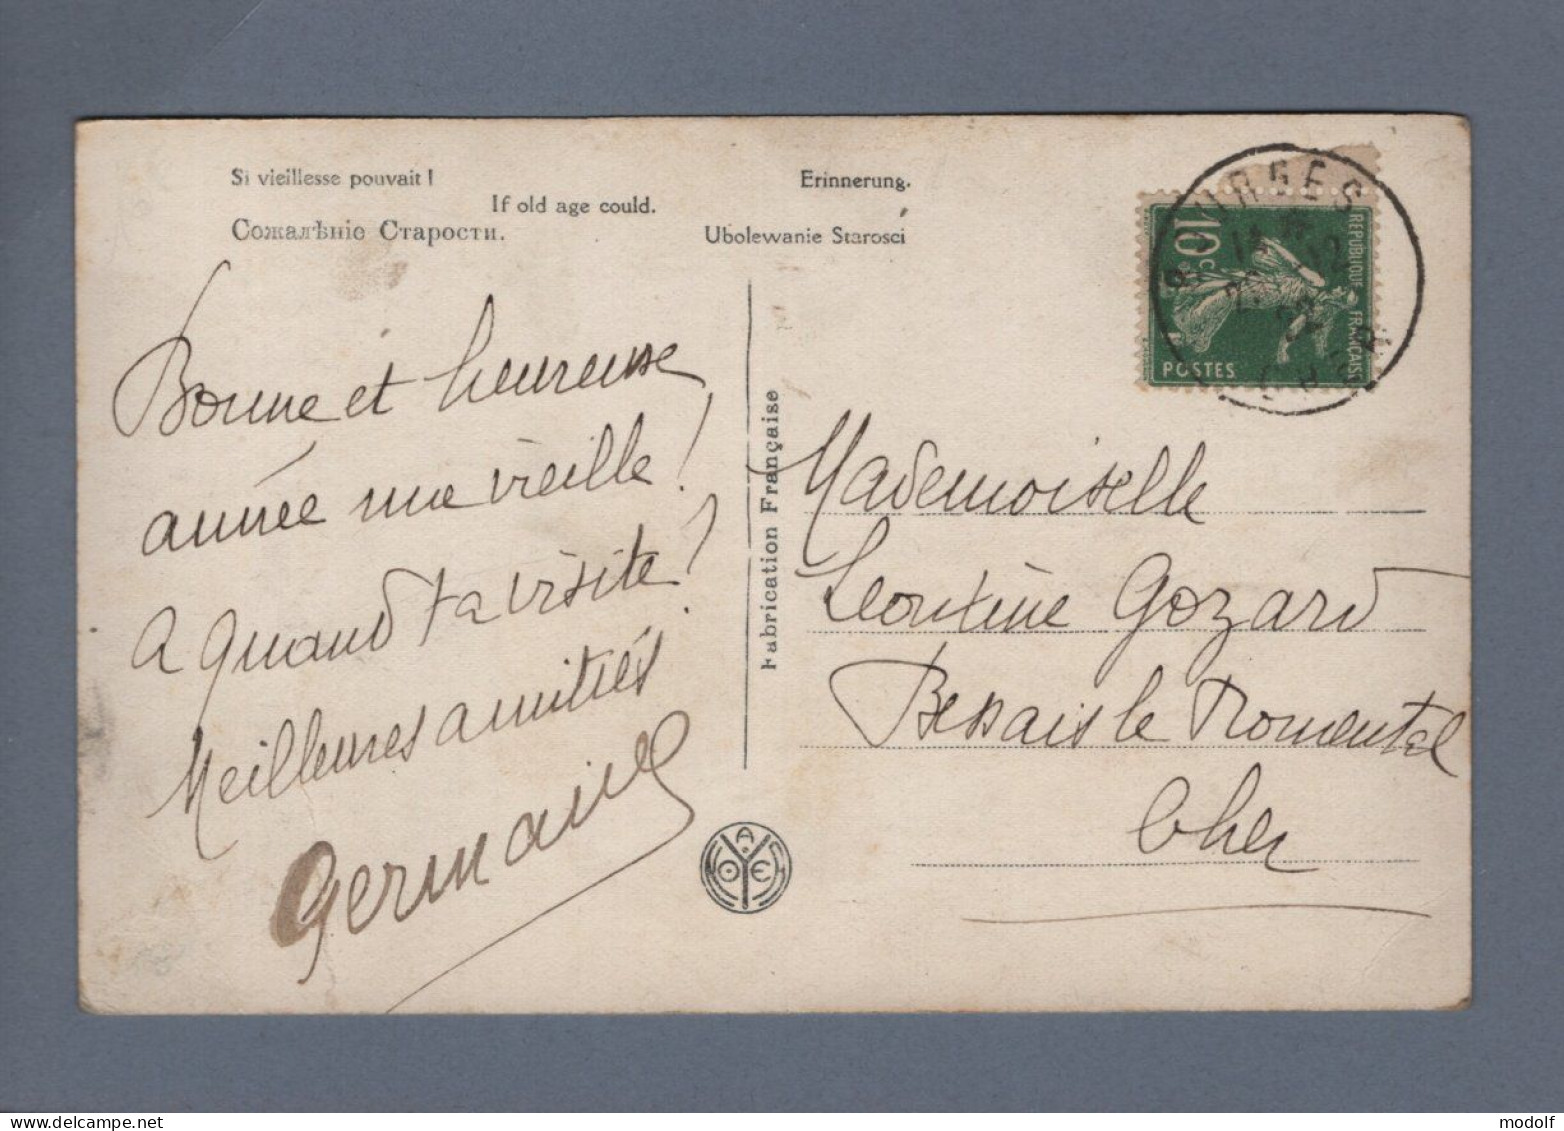 Si vieillesse pouvait !
If old age could.
Сожалѣніе Старости.
Erinnerung.
Ubolewanie Starosci
Bonne et heureuse
année ma vieille !
A quand ta visite ?
Meilleures amitiés
Germaine
Fabrication Française
BOURGES
CHER
10c
REPUBLIQUE FRANÇAISE
POSTES
Mademoiselle
Leontine Gozard
Bessais le Fromental
Cher
modolf